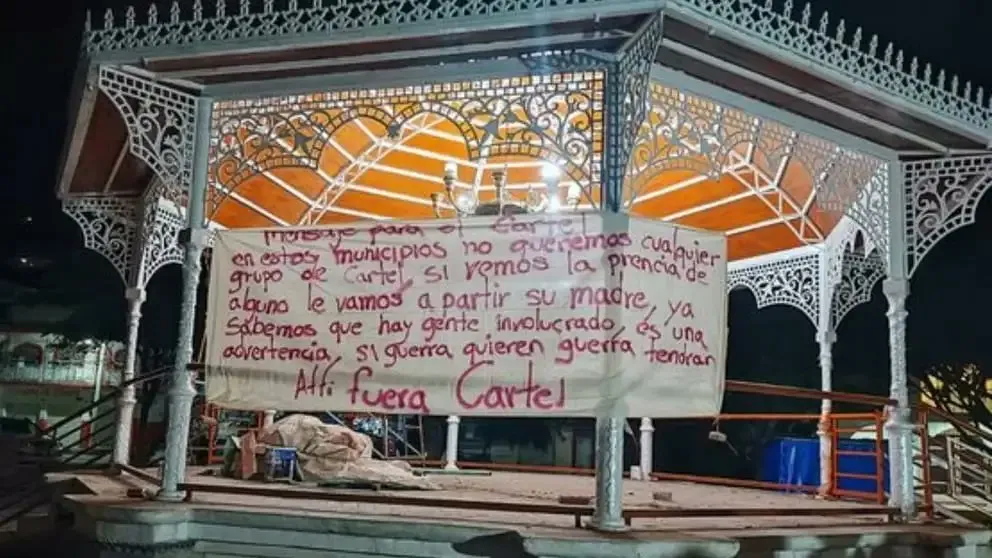 Mensaje para el Cartel
en estos municipios no queremos cualquier
grupo de Cartel, si vemos la prencia de
alguno le vamos a partir su madre, ya
sabemos que hay gente involucrado, es una
advertencia, si guerra quieren guerra tendran
Atti fuera Cartel